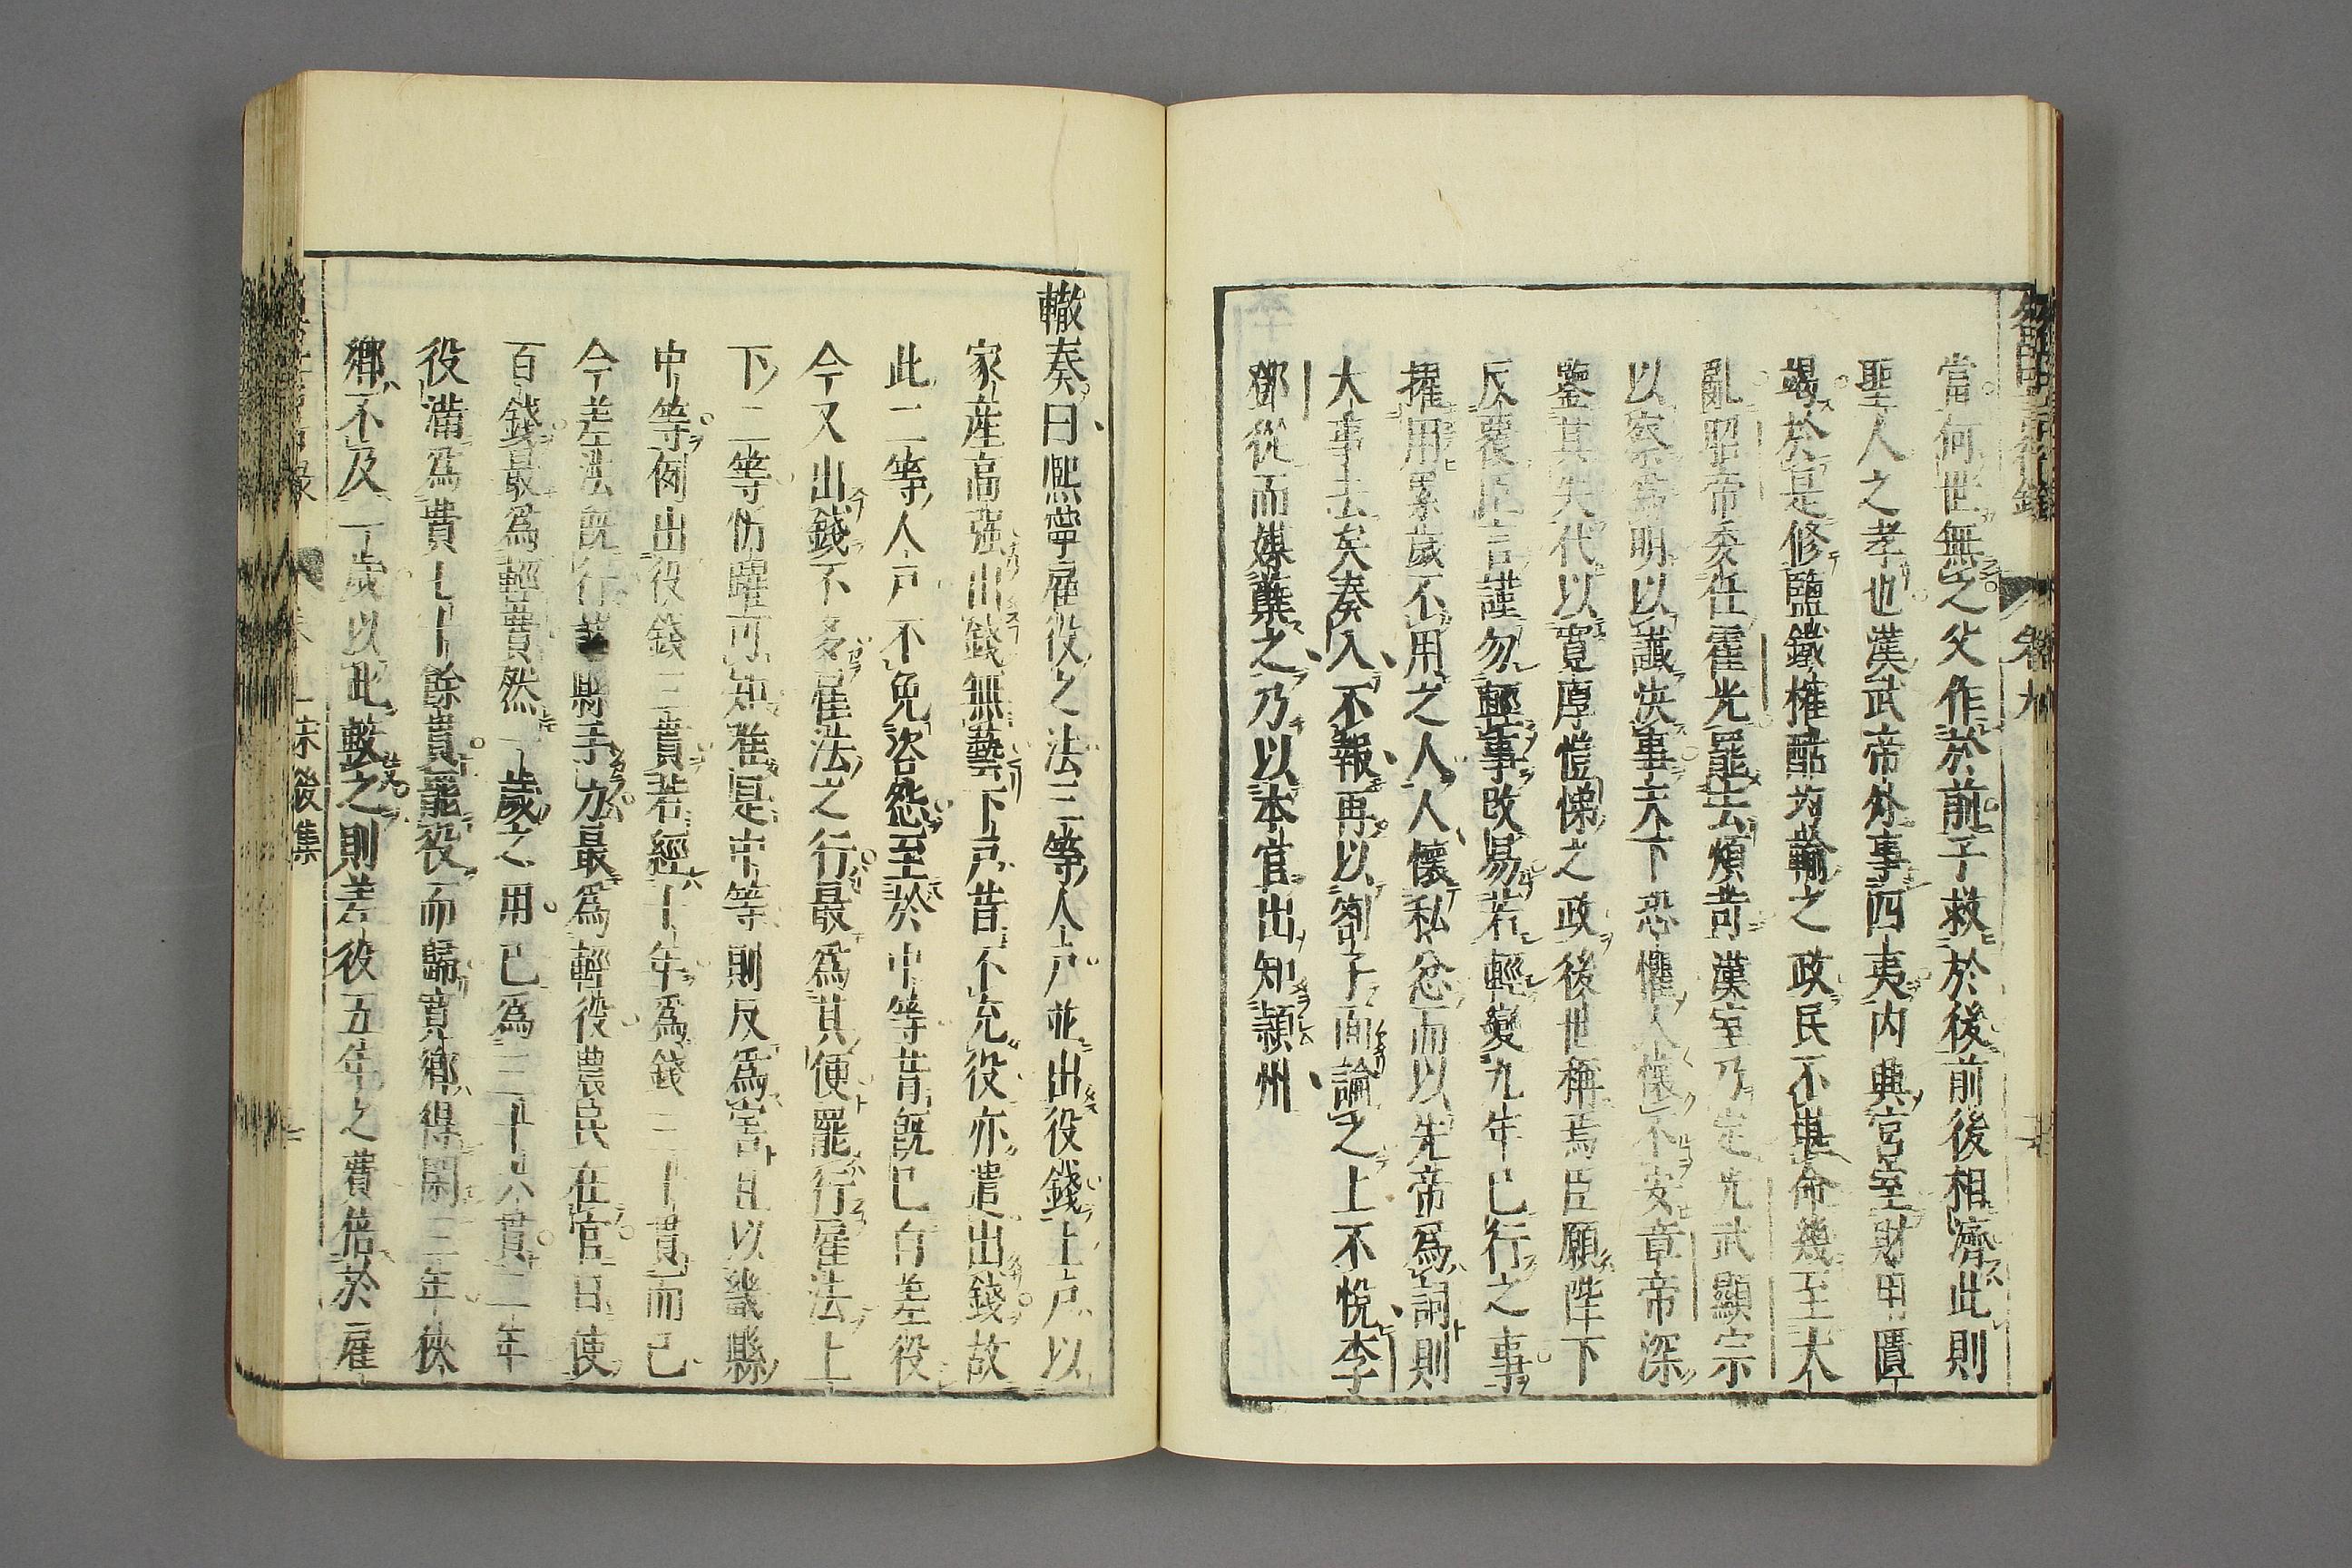 當何世無之父作於前子救於後前後相濟此則
聖人之孝也漢武帝外事四夷内興宮室財用匱
竭於是修鹽鐵榷酤均輸之政民不堪命幾至大
亂昭帝委任霍光罷去煩苛漢室乃定光武顯宗
以察爲明以讖決事天下恐懼人懷不安章帝深
鑒其失代以寬厚愷悌之政後世稱焉臣願陛下
反覆臣言謹勿輕事改易若輕變九年已行之事
擢用累歲不用之人人懷私忿而以先帝爲詞則
大事去矣奏入不報再以劄子面論之上不悅李
鄧從而媒蘖之乃以本官出知潁州
轍奏曰熙寧雇役之法三等人户並出役錢上户以
家産高强出錢無藝下户昔不充役亦遣出錢故
此二等人户不免咨怨至於中等昔既已自差役
今又出錢不多雇法之行最爲其便罷行雇法上
下二等忻躍可知唯是中等則反爲害且以畿縣
中等例出役錢三貫若經十年爲錢三十貫而已
今差法既行諸縣手力最爲輕役農民在官日使
百錢最爲輕費然一歲之用已爲三十六貫二年
役滿爲費七十餘貫罷役而歸寛鄉得閑三年狹
鄉不及一歲以此數之則差役五年之費倍於雇